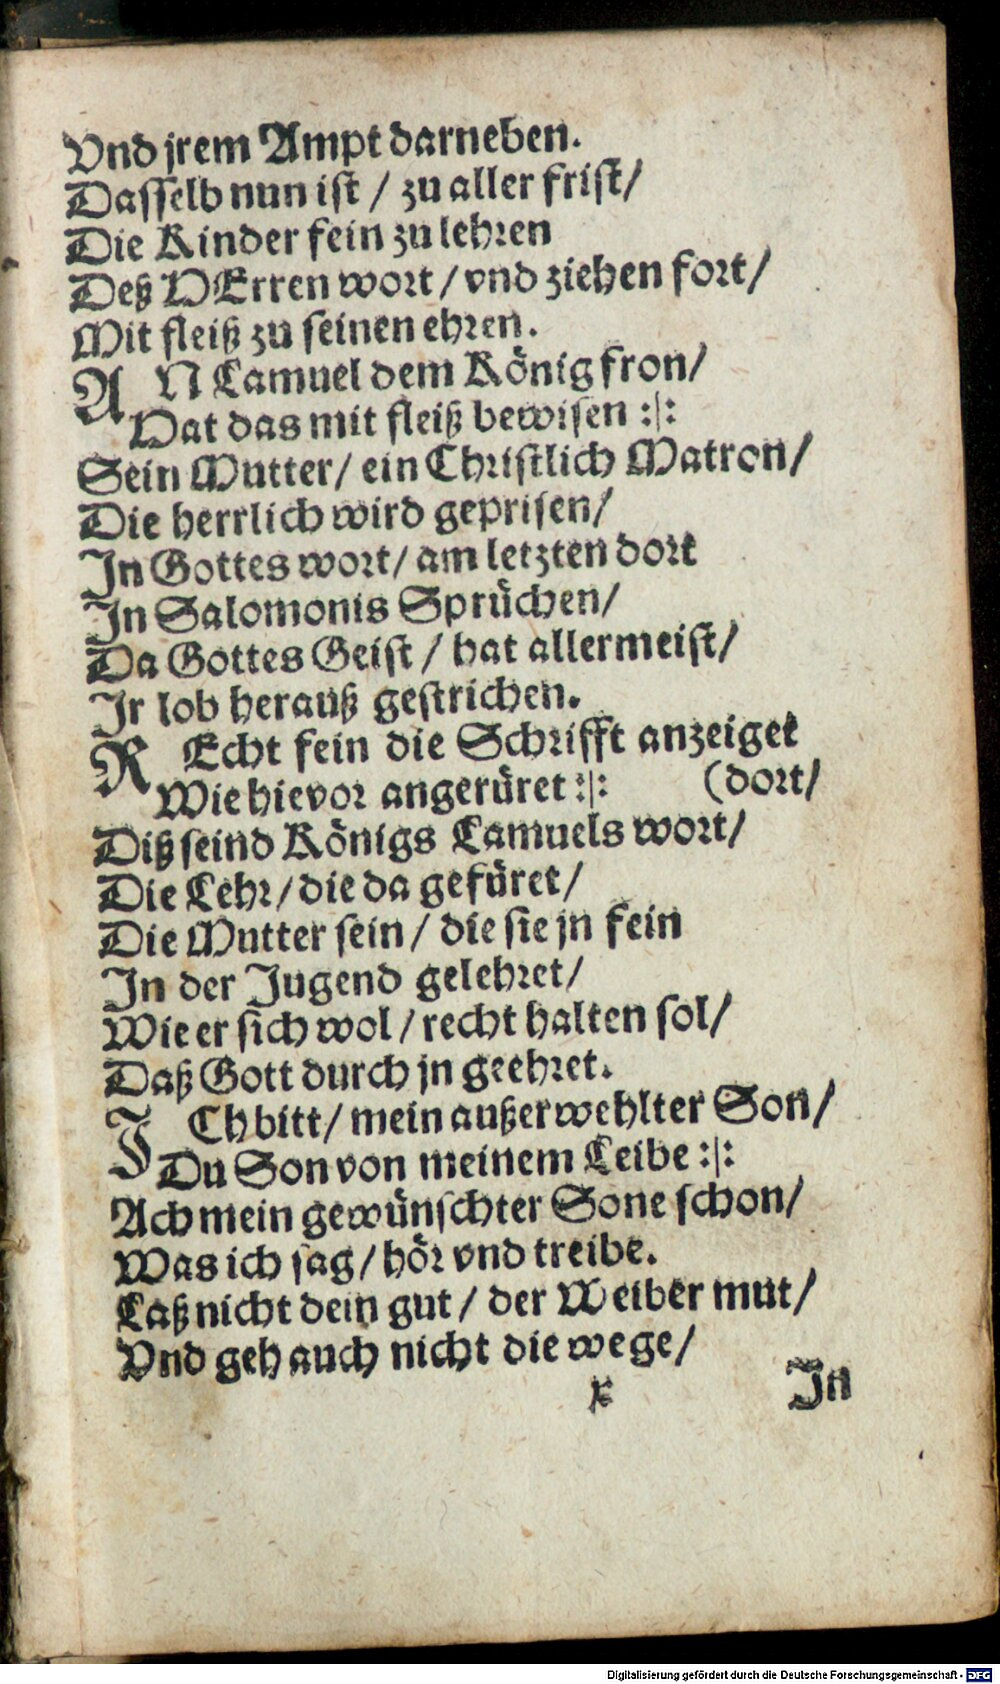 Vnd jrem Ampt darneben.
Dasselb nun ist / zu aller frist /
Die Kinder fein zu lehren
Deß HErren wort / vnd ziehen fort /
Mit fleiß zu seinen ehren.
AN Lamuel dem König fron /
Hat das mit fleiß bewisen :|:
Sein Mutter / ein Christlich Matron /
Die herrlich wird geprisen /
In Gottes wort / am letzten dort
In Salomonis Sprüchen /
Da Gottes Geist / hat allermeist /
Ir lob herauß gestrichen.
REcht fein die Schrifft anzeiget
Wie hievor angerüret :|: (dort /
Diß seind Königs Lamuels wort /
Die Lehr / die da gefüret /
Die Mutter sein / die sie jn fein
In der Jugend gelehret /
Wie er sich wol / recht halten sol /
Daß Gott durch jn geehret.
ICh bitt / mein außerwehlter Son /
Du Son von meinem Leibe :|:
Ach mein gewünschter Sone schon /
Was ich sag / hör vnd treibe.
Laß nicht dein gut / der Weiber mut /
Vnd geh auch nicht die wege /
x In
Digitalisierung gefördert durch die Deutsche Forschungsgemeinschaft - DFG